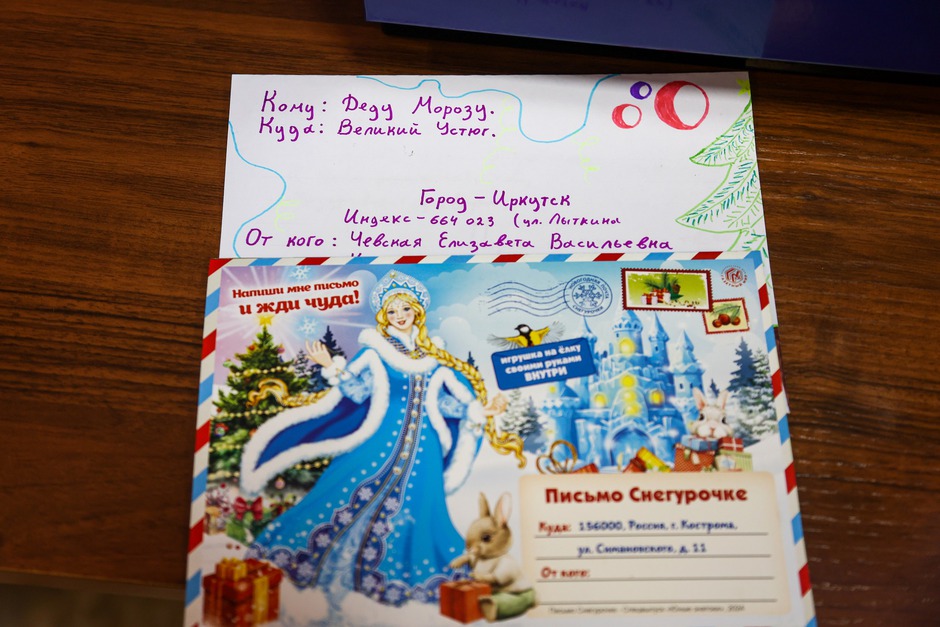 Кому: Деду Морозу.
Куда: Великий Устюг.
Город - Иркутск
Индекс - 664 023 (ул. Лыткина
От кого: Чевская Елизавета Васильевна
Напиши мне письмо
и жди чуда!
НОВОГОДНЯЯ ПОЧТА
СНЕГУРОЧКИ
игрушка на ёлку
своими руками
ВНУТРИ
Письмо Снегурочке
Куда: 156000, Россия, г. Кострома,
ул. Симановского, д. 11
От кого:
Письмо Снегурочке - Спецвыпуск «Юные знатоки», 2024